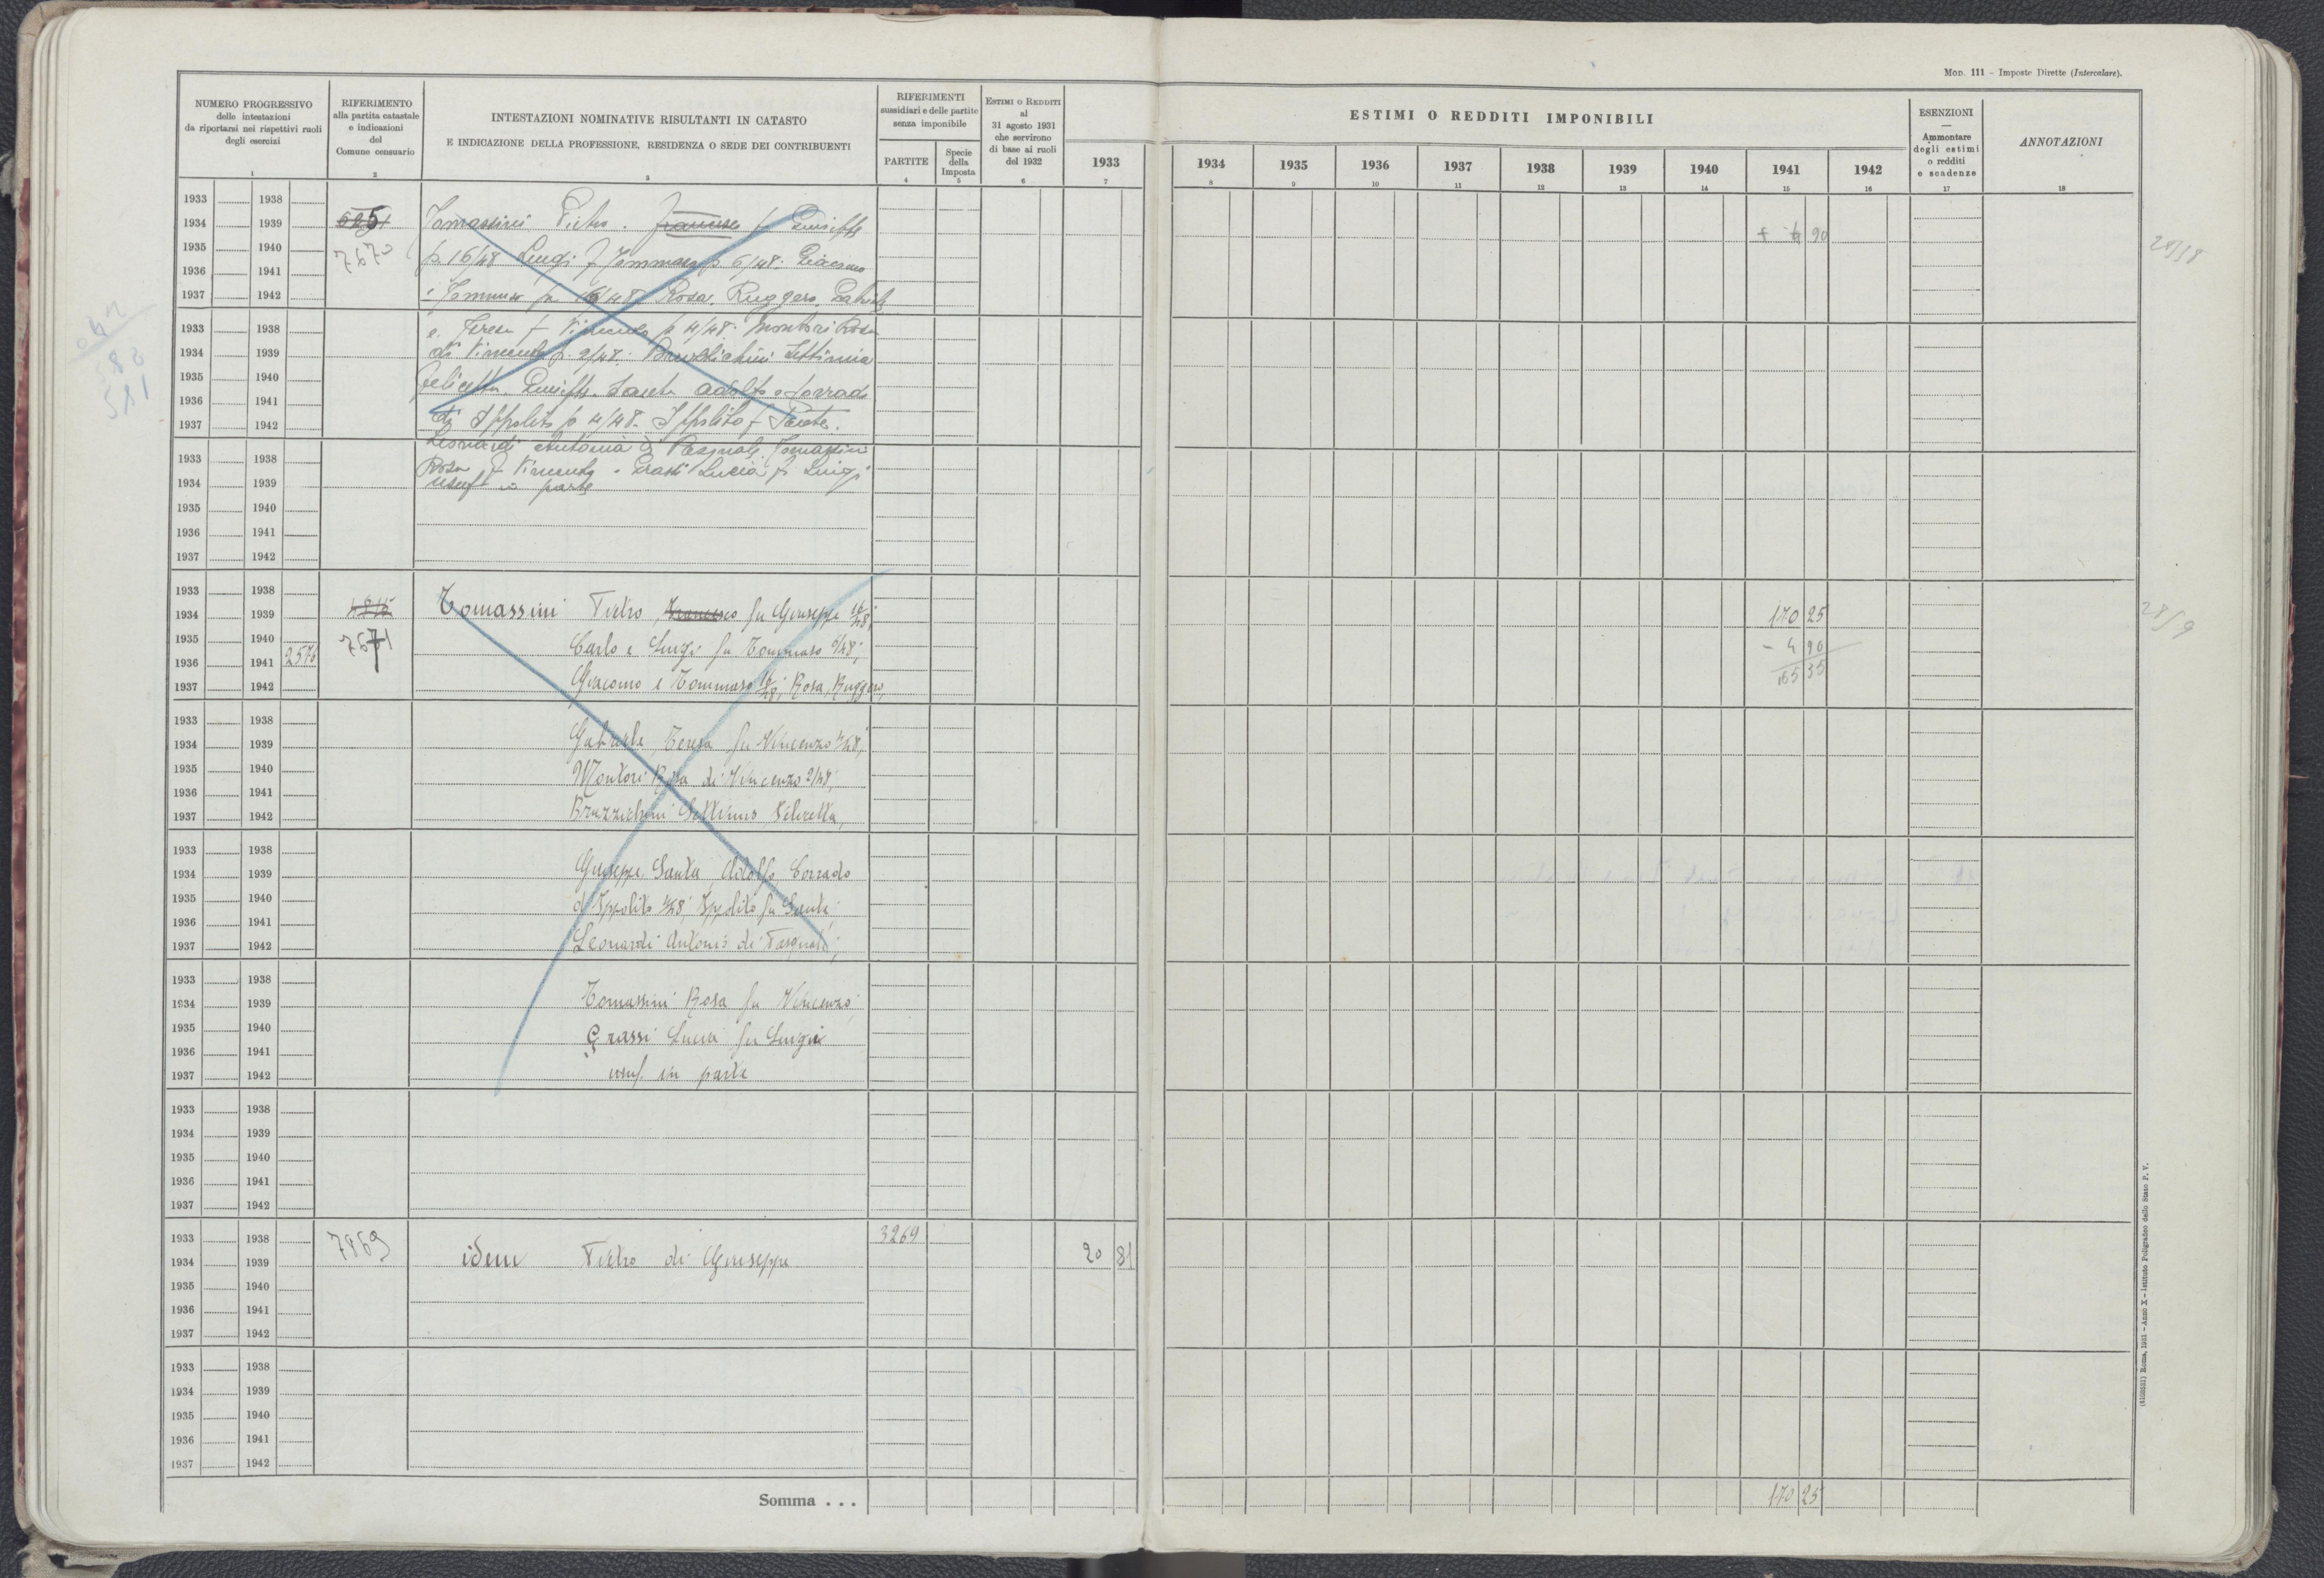 Mod. 111 - Imposte Dirette (Intercalare).
NUMERO PROGRESSIVO
delle intestazioni
da riportarsi nei rispettivi ruoli
degli esercizi
1
RIFERIMENTO
alla partita catastale
e indicazioni
del
Comune censuario
2
INTESTAZIONI NOMINATIVE RISULTANTI IN CATASTO
E INDICAZIONE DELLA PROFESSIONE, RESIDENZA O SEDE DEI CONTRIBUENTI
3
RIFERIMENTI
sussidiari e delle partite
senza imponibile
PARTITE
4
Specie
della
Imposta
5
Estimi o Redditi
al
31 agosto 1931
che servirono
di base ai ruoli
del 1932
6
ESTIMI O REDDITI IMPONIBILI
1933 1934 1935 1936 1937 1938 1939 1940 1941 1942
7 8 9 10 11 12 13 14 15 16
ESENZIONI
Ammontare
degli estimi
o redditi
e scadenze
17
ANNOTAZIONI
18
1933 1938
1934 1939 Tomassini Pietro. Francesco f Giuseppe
+ 4 90
1935 1940 7670 p. 16/48 Luigi f Tommaso p 6/48. Giacomo
1936 1941
1937 1942 e Tommaso p 16/48 Rosa, Ruggero, Gabriele
1933 1938 e Teresa f Vincenzo p 4/48. Montori Rosa
1934 1939 di Vincenzo p. 2/48. Bruzzichini Settimia
1935 1940 Felicetta. Giuseppe. Santa Adolfo e Corrado
1936 1941
1937 1942 di Ippolito p 4/48. Ippolito f Sante.
Leonardi Antonia di Pasquale. Tomassini
1933 1938 Rosa f Vincenzo. Grassi Lucia f Luigi
1934 1939 usuf in parte
1935 1940
1936 1941
1937 1942
1933 1938
1934 1939 Tomassini Pietro, Francesco fu Giuseppe 16/48; 170 25
1935 1940 7671 Carlo e Luigi fu Tommaso 6/48; - 4 90
1936 1941 2576 165 35
1937 1942 Giacomo e Tommaso 16/48; Rosa, Ruggero,
1933 1938
1934 1939 Gabriele, Teresa fu Vincenzo 4/48;
1935 1940 Montori Rosa di Vincenzo 2/48,
1936 1941
1937 1942 Bruzzichini Settimio, Felicetta,
1933 1938
1934 1939 Giuseppe, Santa, Adolfo Corrado
1935 1940 d'Ippolito 4/48; Ippolito fu Sante;
1936 1941
1937 1942 Leonardi Antonio di Pasquale;
1933 1938
1934 1939 Tomassini Rosa fu Vincenzo;
1935 1940
1936 1941 Grassi Lucia fu Luigi
1937 1942 usuf. in parte
1933 1938
1934 1939
1935 1940
1936 1941
1937 1942
1933 1938 7869 3269
1934 1939 idem Pietro di Giuseppe 20 81
1935 1940
1936 1941
1937 1942
1933 1938
1934 1939
1935 1940
1936 1941
1937 1942
Somma . . . 170 25
Roma, 1931 - Anno X - Istituto Poligrafico dello Stato P. V.